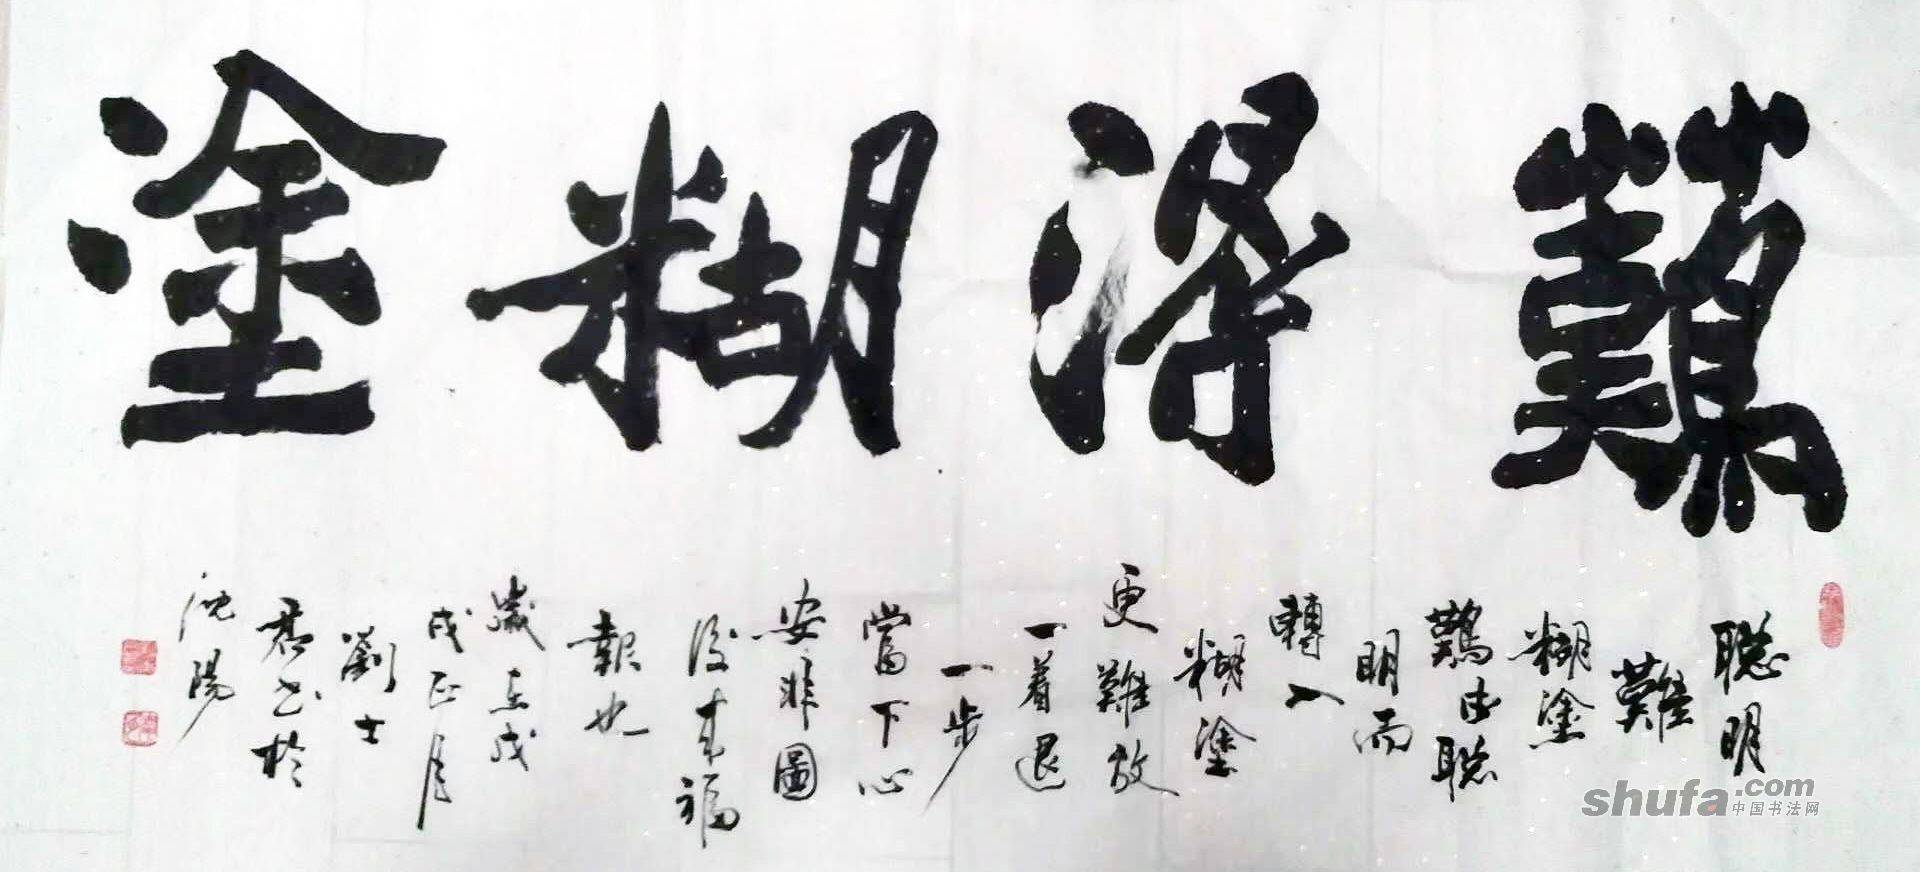 難得糊塗
聰明
難
糊塗
難由聰
明而
轉入
糊塗
更難放
一着退
一步
當下心
安非圖
後來福
報也
歲在戊
戌正月
劉士
书於
沈陽
shufa.com
中国书法网